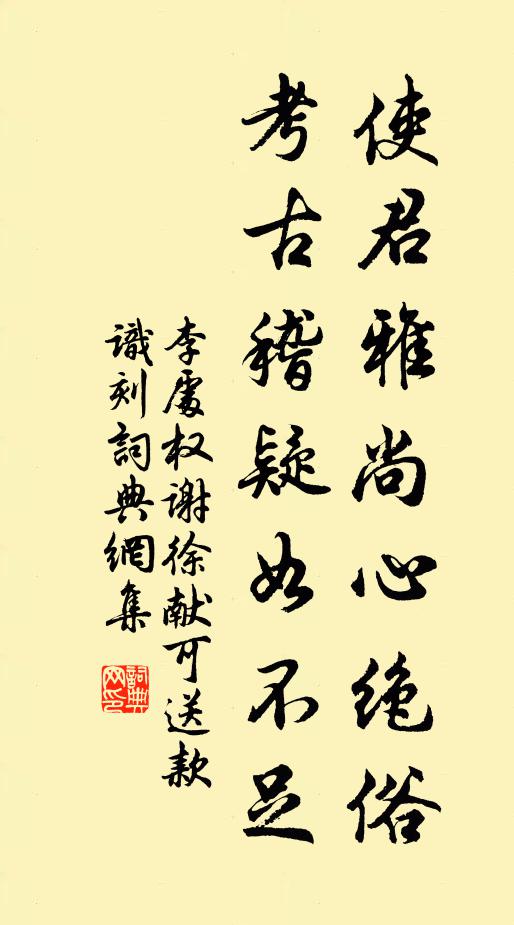 使君雅尚心绝俗
考古稽疑如不足
李處权谢徐献可送款
識刻詞典網集
詞典
网印